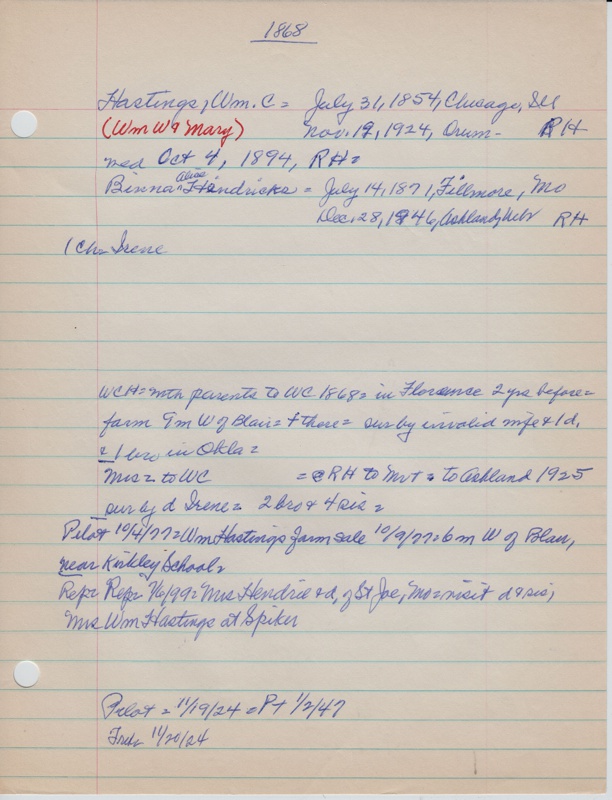 1868
Hastings, Wm. C = July 31, 1854, Chicago, Ill
(Wm W & Mary) Nov. 19, 1924, Orum - RH
med Oct 4, 1894, RH =
Alice
Binna Hendricks = July 14, 1871, Fillmore, Mo
Dec. 28, 1946, Ashland, Nebr RH
1 ch = Irene
WCH = with parents to WC 1868 = in Florence 2 yrs before =
farm 9 m W of Blair = + there = sur by invalid wife & 1 d,
& 1 bro in Okla =
Mrs = to WC = RH to Mvt = to Ashland 1925
sur by d Irene = 2 bro & 4 sis =
Pilot 10/4/77 = Wm Hastings farm sale 10/9/77 = 6 m W of Blair,
near Kinkley School =
Rep = Rep 7/6/99 = Mrs Hendric & d, of St Joe, Mo = visit d & sis,
Mrs Wm Hastings at Spiker
Pilot = 11/19/24 = Pt 1/2/47
11/20/24